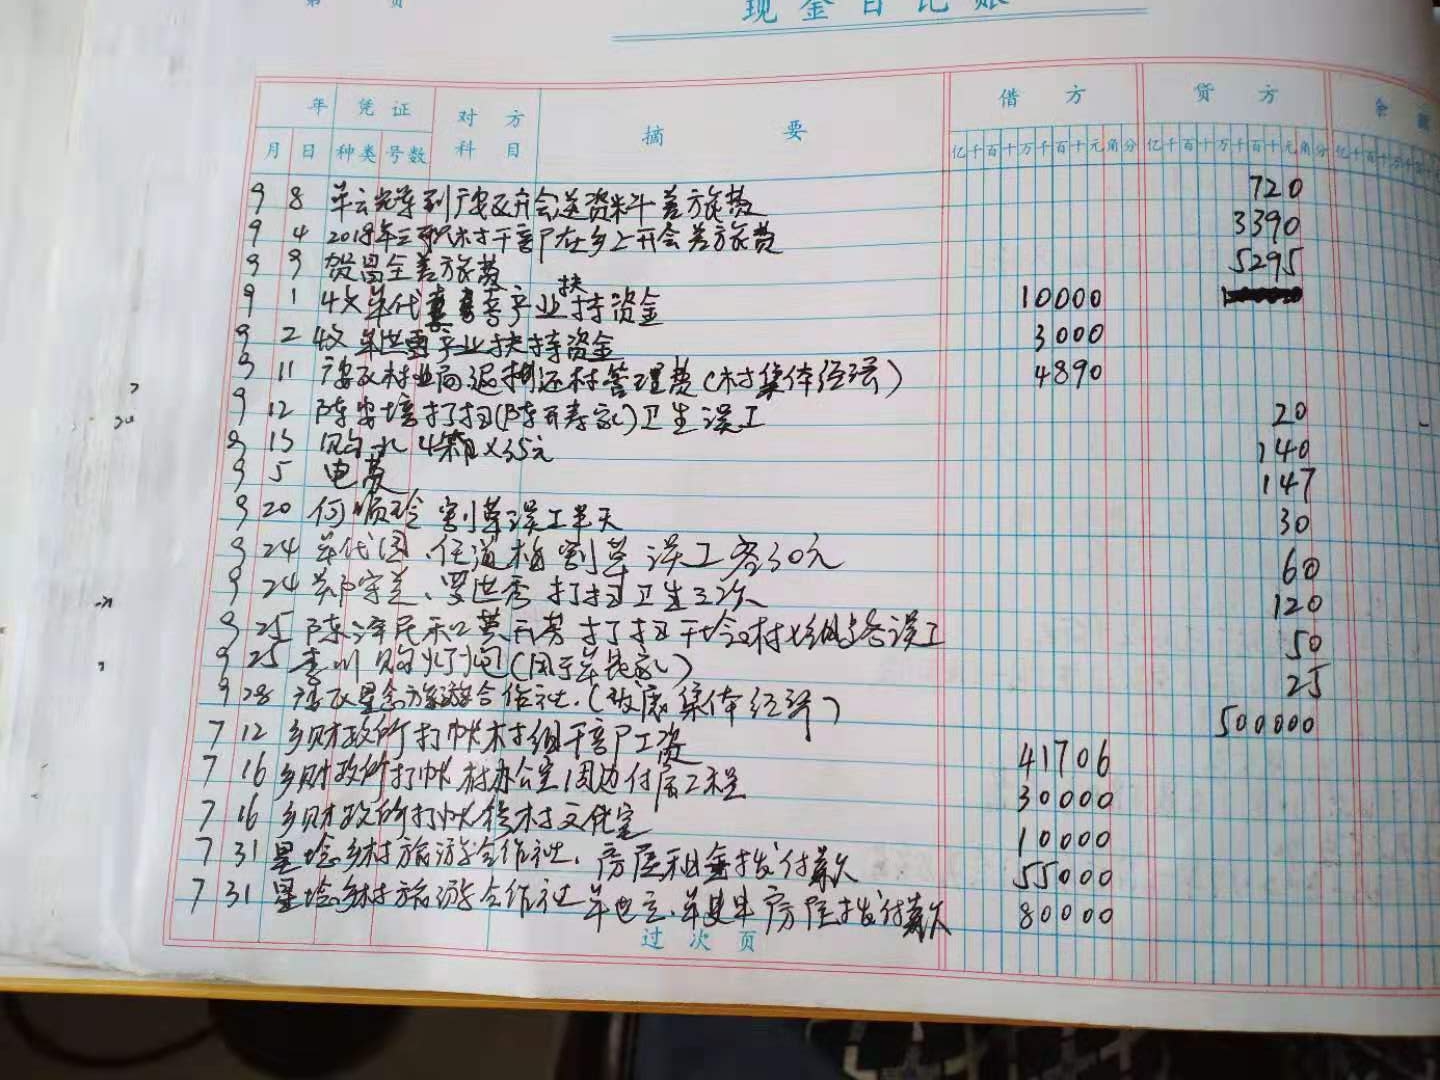 第 页
现金日记账
年 凭证 对方 摘要 借方 贷方 余额
月 日 种类 号数 科目 亿千百十万千百十元角分 亿千百十万千百十元角分 亿千百十万千
9 8 到 开会送资料差旅费 720
9 4 2018年三职村干部在乡上开会差旅费 3390
9 9 贺昌全差旅费 5295
9 1 收单代 产业扶持资金 10000
9 2 收单世 产业扶持资金 3000
9 11 林业局退 还村管理费(村集体经济) 4890
9 12 陈安培打扫(陈开寿家)卫生误工 20
9 13 购水4箱×35元 140
9 5 电费 147
9 20 何顺玲割草误工半天 30
9 24 单代国、任道梅割草误工各30元 60
9 24 郑守兰、罗世秀打扫卫生三次 120
9 25 陈泽民和 打扫 村 组 误工 50
9 25 李川购灯泡(用于单 家) 25
9 28 旅游合作社.(发展集体经济) 500000
7 12 乡财政所打帐村组干部工资 41706
7 16 乡财政所打帐村办公室周边付属工程 30000
7 16 乡财政所打帐 村文化室 10000
7 31 乡村旅游合作社.房屋租金拨付款 55000
7 31 乡村旅游合作社单 、单 房屋拨付款 80000
过次页